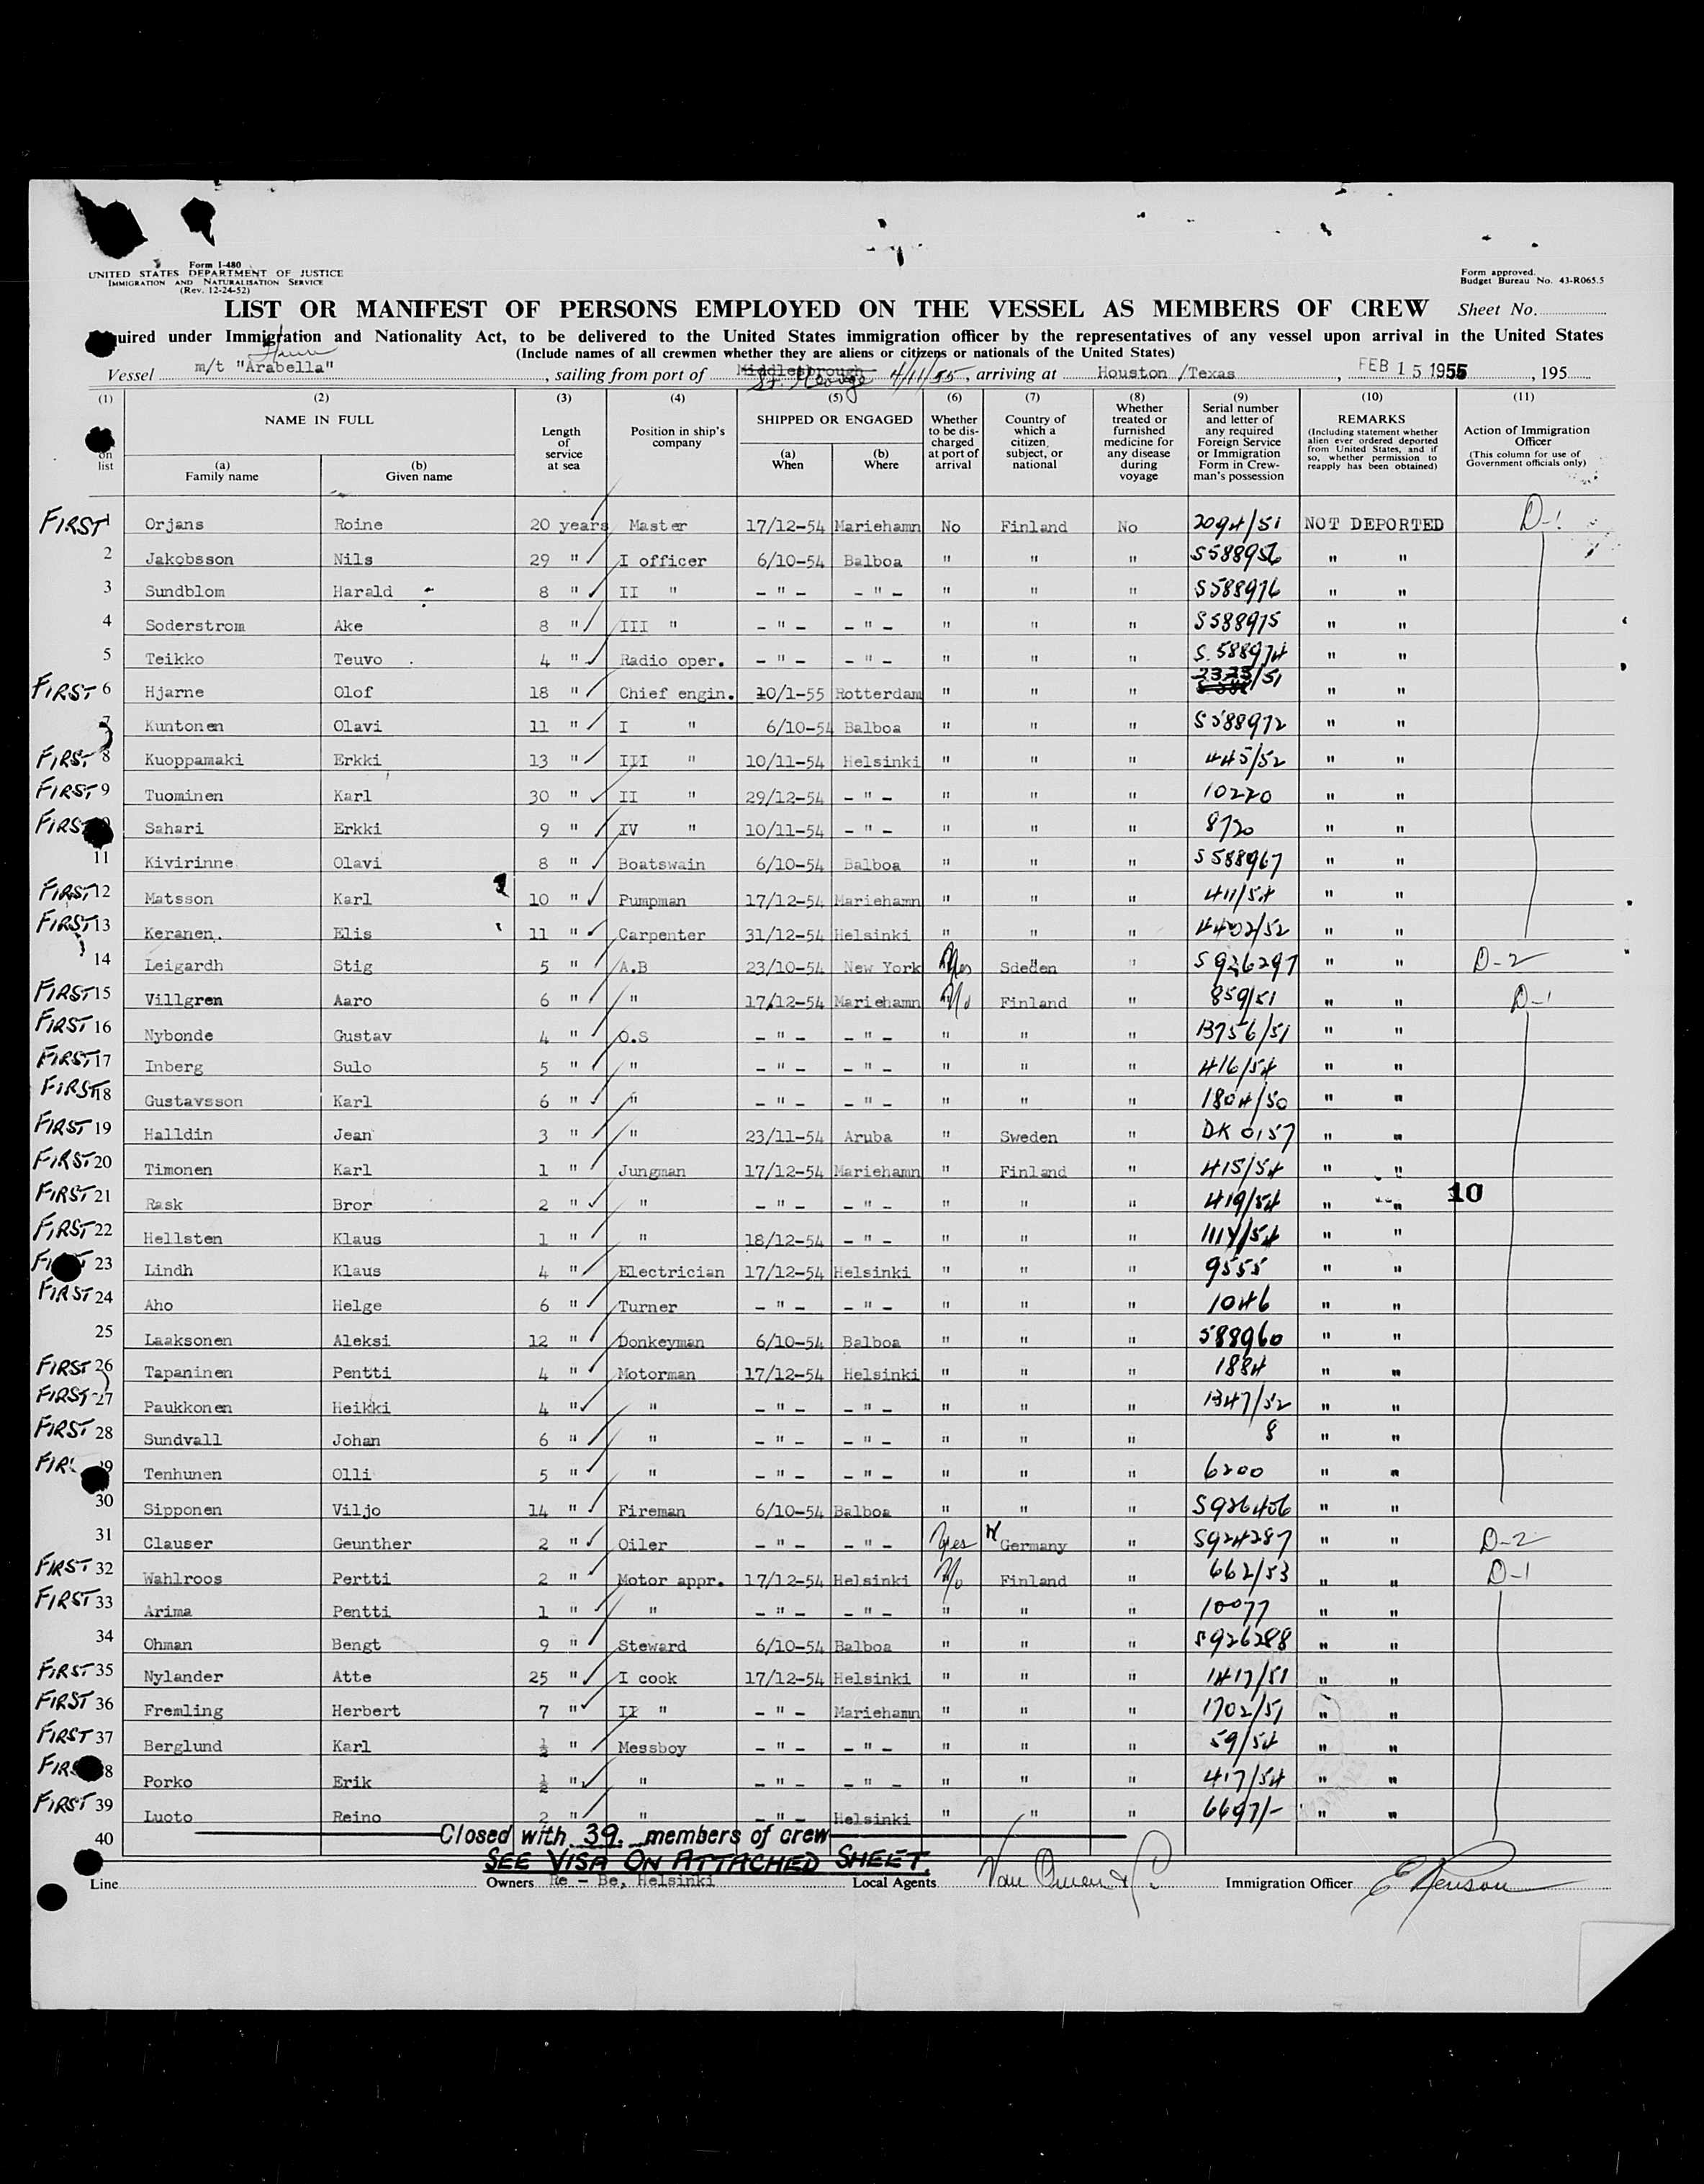 Form I-480
UNITED STATES DEPARTMENT OF JUSTICE
IMMIGRATION AND NATURALISATION SERVICE
(Rev. 12-24-52)
Form approved.
Budget Bureau No. 43-R065.5
LIST OR MANIFEST OF PERSONS EMPLOYED ON THE VESSEL AS MEMBERS OF CREW Sheet No.
uired under Immigration and Nationality Act, to be delivered to the United States immigration officer by the representatives of any vessel upon arrival in the United States
(Include names of all crewmen whether they are aliens or citizens or nationals of the United States)
Vessel m/t "Arabella", sailing from port of Middlesbrough St. George 4/11/55, arriving at Houston /Texas, FEB 15 1955, 195
(1) (2) (3) (4) (5) (6) (7) (8) (9) (10) (11)
on list
NAME IN FULL
(a) Family name
(b) Given name
Length of service at sea
Position in ship's company
SHIPPED OR ENGAGED
(a) When
(b) Where
Whether to be discharged at port of arrival
Country of which a citizen, subject, or national
Whether treated or furnished medicine for any disease during voyage
Serial number and letter of any required Foreign Service or Immigration Form in Crewman's possession
REMARKS
(Including statement whether alien ever ordered deported from United States, and if so, whether permission to reapply has been obtained)
Action of Immigration Officer
(This column for use of Government officials only)
FIRST 1 Orjans Roine 20 years Master 17/12-54 Mariehamn No Finland No 2094/51 NOT DEPORTED D-1
2 Jakobsson Nils 29 " I officer 6/10-54 Balboa " " " S588956 " "
3 Sundblom Harald 8 " II " - " - - " - " " " S588976 " "
4 Soderstrom Ake 8 " III " - " - - " - " " " S588975 " "
5 Teikko Teuvo 4 " Radio oper. - " - - " - " " " S.588974 " "
FIRST 6 Hjarne Olof 18 " Chief engin. 10/1-55 Rotterdam " " " 2373/51 " "
7 Kuntonen Olavi 11 " I " 6/10-54 Balboa " " " S588972 " "
FIRST 8 Kuoppamaki Erkki 13 " III " 10/11-54 Helsinki " " " 445/52 " "
FIRST 9 Tuominen Karl 30 " II " 29/12-54 - " - " " " 10270 " "
FIRST Sahari Erkki 9 " IV " 10/11-54 - " - " " " 8720 " "
11 Kivirinne Olavi 8 " Boatswain 6/10-54 Balboa " " " S588967 " "
FIRST 12 Matsson Karl 10 " Pumpman 17/12-54 Mariehamn " " " 411/54 " "
FIRST 13 Keranen. Elis 11 " Carpenter 31/12-54 Helsinki " " " 4402/52 " "
14 Leigardh Stig 5 " A.B 23/10-54 New York Yes Sdeden " S926297 " " D-2
FIRST 15 Villgren Aaro 6 " " 17/12-54 Mariehamn No Finland " 859/51 " " D-1
FIRST 16 Nybonde Gustav 4 " O.S - " - - " - " " " 13756/51 " "
FIRST 17 Inberg Sulo 5 " " - " - - " - " " " 416/54 " "
FIRST 18 Gustavsson Karl 6 " " - " - - " - " " " 1804/50 " "
FIRST 19 Halldin Jean 3 " " 23/11-54 Aruba " Sweden " DK 0157 " "
FIRST 20 Timonen Karl 1 " Jungman 17/12-54 Mariehamn " Finland " 415/54 " "
FIRST 21 Rask Bror 2 " " - " - - " - " " " 419/54 " " 10
FIRST 22 Hellsten Klaus 1 " " 18/12-54 - " - " " " 1114/54 " "
23 Lindh Klaus 4 " Electrician 17/12-54 Helsinki " " " 9555 " "
FIRST 24 Aho Helge 6 " Turner - " - - " - " " " 1046 " "
25 Laaksonen Aleksi 12 " Donkeyman 6/10-54 Balboa " " " 588960 " "
FIRST 26 Tapaninen Pentti 4 " Motorman 17/12-54 Helsinki " " " 1884 " "
FIRST 27 Paukkonen Heikki 4 " " - " - - " - " " " 1347/52 " "
FIRST 28 Sundvall Johan 6 " " - " - - " - " " " 8 " "
Tenhunen Olli 5 " " - " - - " - " " " 6200 " "
30 Sipponen Viljo 14 " Fireman 6/10-54 Balboa " " " S926406 " "
31 Clauser Geunther 2 " Oiler - " - - " - Yes W Germany " S924287 " " D-2
FIRST 32 Wahlroos Pertti 2 " Motor appr. 17/12-54 Helsinki No Finland " 662/53 " " D-1
FIRST 33 Arima Pentti 1 " " - " - - " - " " " 10077 " "
34 Ohman Bengt 9 " Steward 6/10-54 Balboa " " " S926288 " "
FIRST 35 Nylander Atte 25 " I cook 17/12-54 Helsinki " " " 1417/51 " "
FIRST 36 Fremling Herbert 7 " II " - " - Mariehamn " " " 1702/51 " "
FIRST 37 Berglund Karl ½ " Messboy - " - - " - " " " 59/54 " "
Porko Erik ½ " " - " - - " - " " " 417/54 " "
FIRST 39 Luoto Reino 2 " " - " - Helsinki " " " 6697/- " "
40 Closed with 39. members of crew
SEE VISA ON ATTACHED SHEET.
Line Owners Re - Be, Helsinki Local Agents Immigration Officer